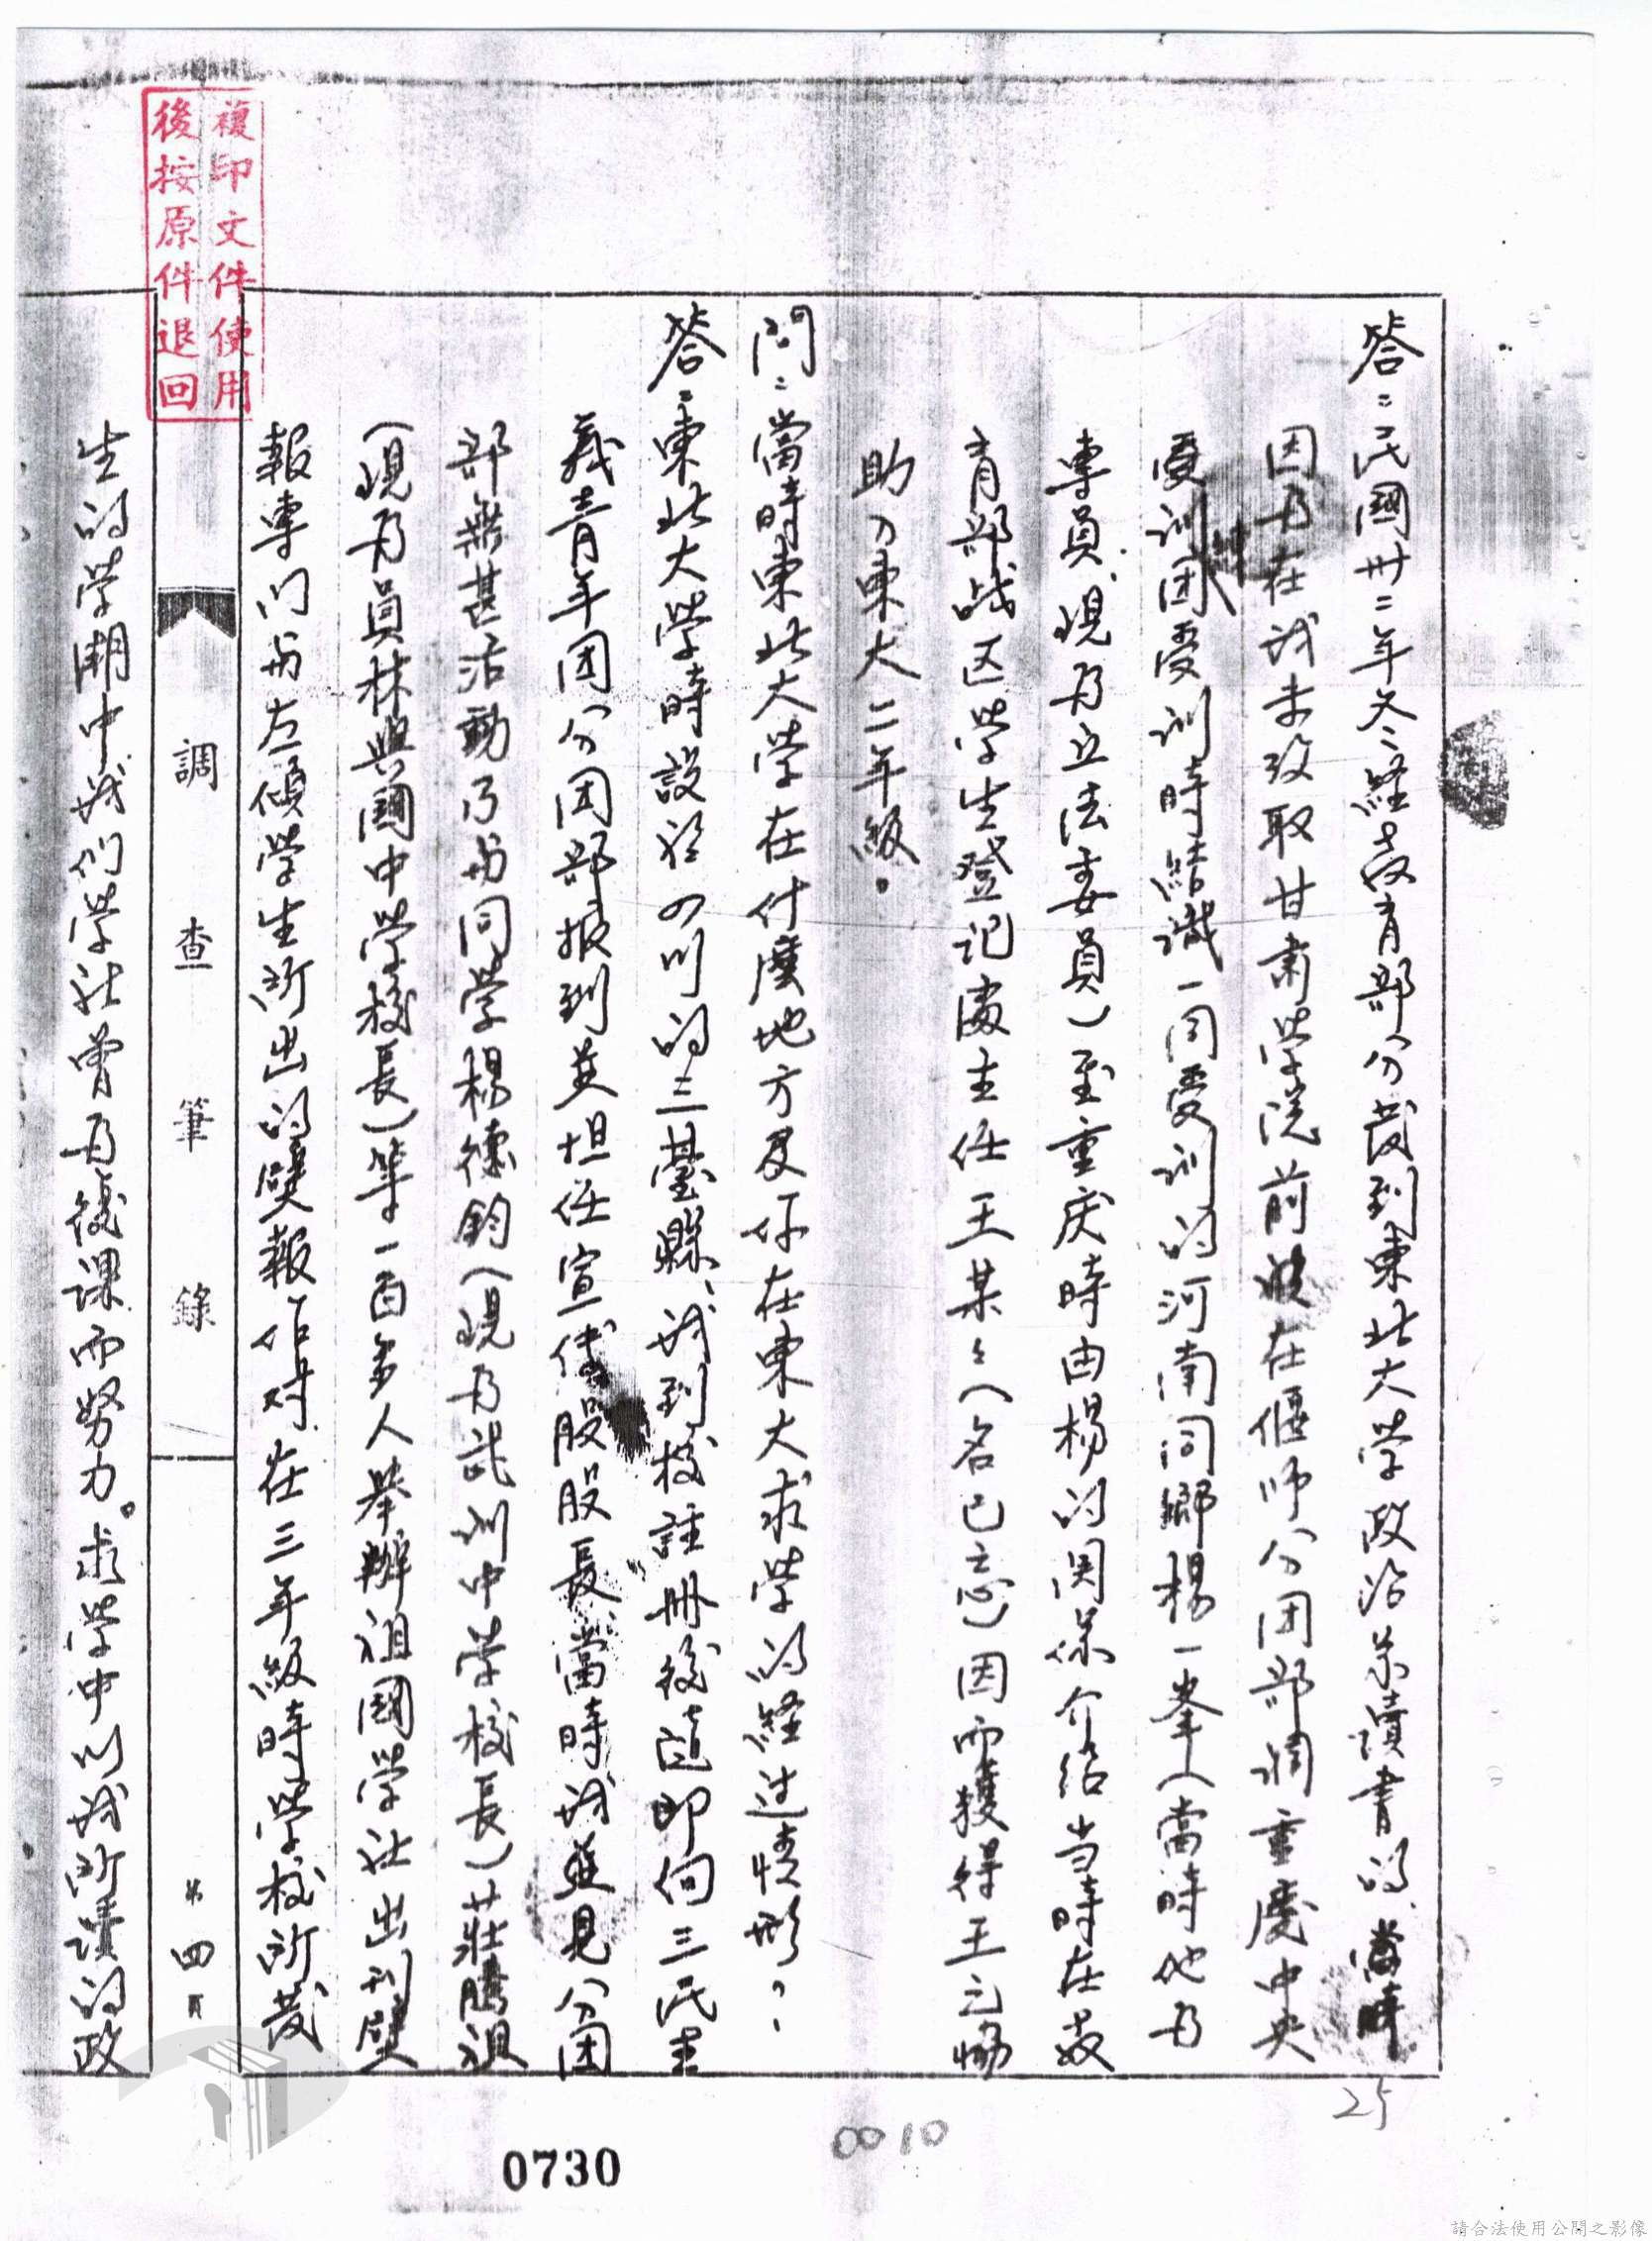 複印文件使用
後按原件退回
答：民國卅二年冬經教育部分發到東北大學政治系讀書的，當時
因为在我未攷取甘肅学院前在偃师分团部調重慶中央
受訓团受訓時結識一同受訓的河南同鄉楊一峯（當時他为
專員，現为立法委員）至重庆時由楊的関係介绍当時在教
育部战区学生登记處主任王某々（名已忘）因而獲得王之協
助入東大二年級。
問：當時東北大学在什麼地方及你在東大求学的經过情形？
答：東北大学時設於四川的三臺縣，我到校註冊後随即向三民主
義青年团分团部报到並担任宣传股股長，當時我並見分团
部無甚活動乃与同学楊德鈞（現为武训中学校長）莊騰祖
（現为員林興國中学校長）等一百多人举辦祖國学社出刊壁
報專门与左傾学生所出的壁報作对，在三年級時学校所發
調查筆錄
第四頁
生的学潮中我们学社曾为復課而努力。求学中以我所讀的政
25
0010
0730
請合法使用公開之影像